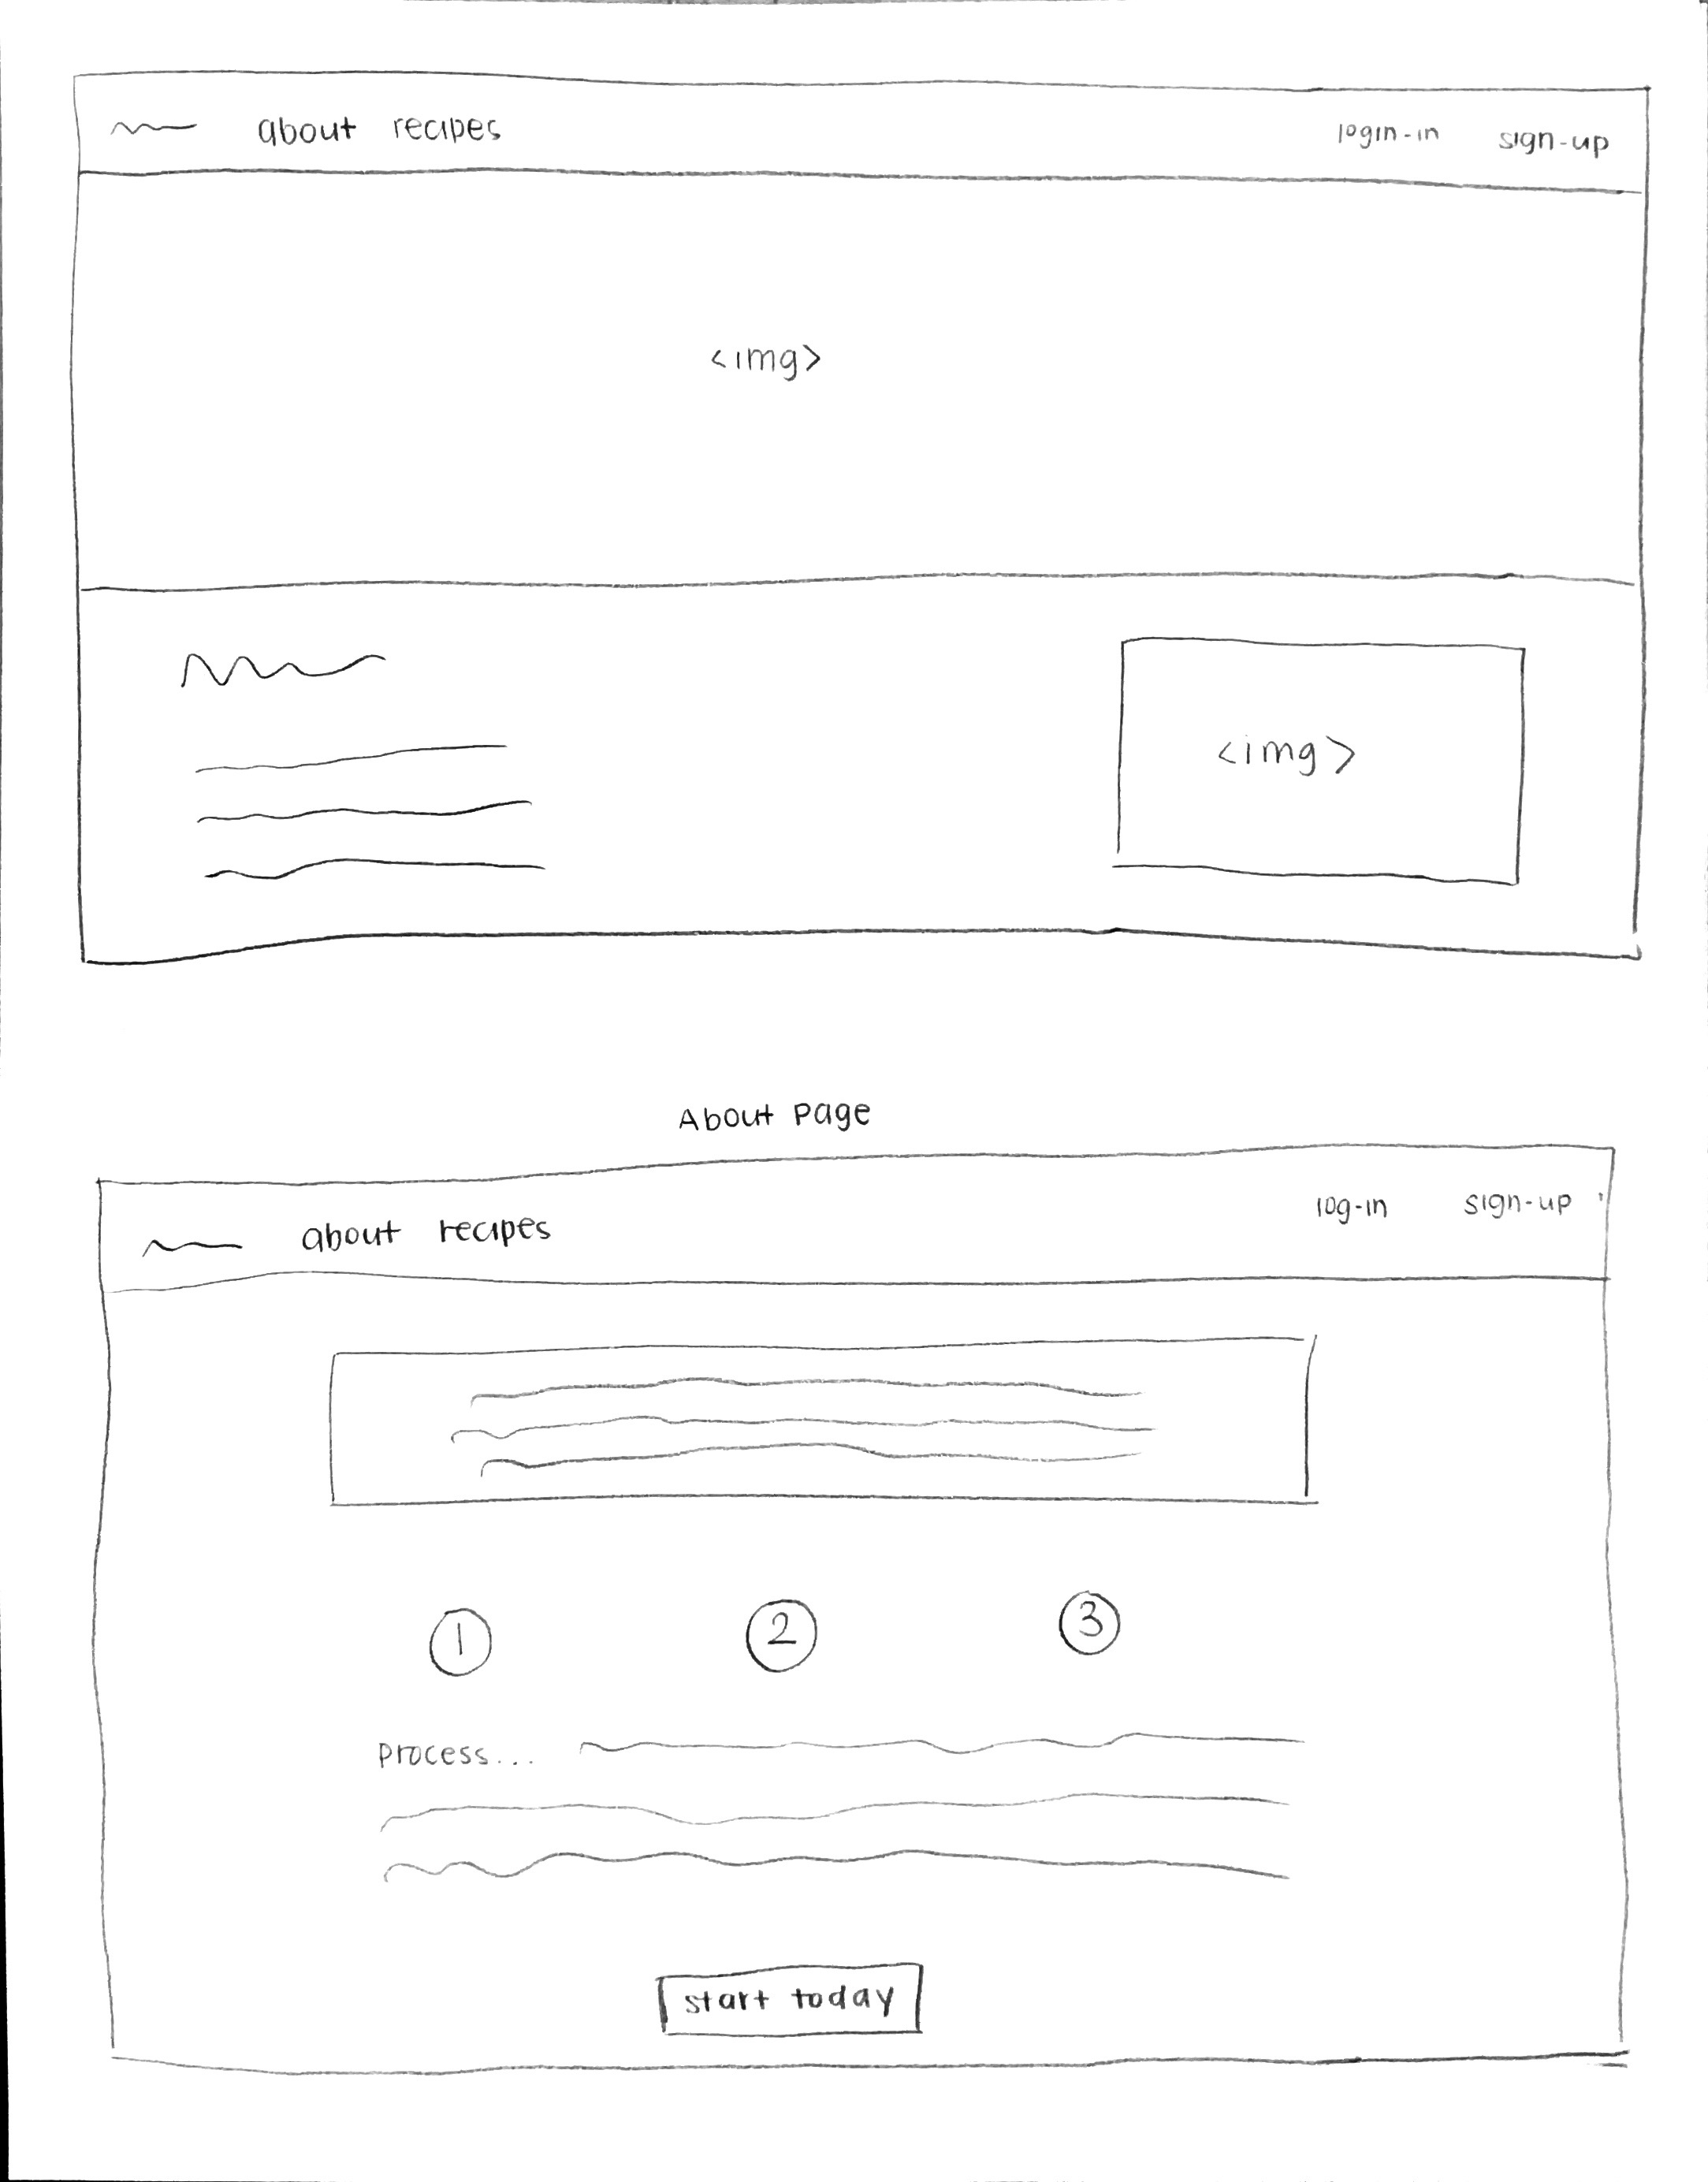 about recipes login-in sign-up
<img>
<img>
About Page
about recipes log-in sign-up
1 2 3
process...
start today